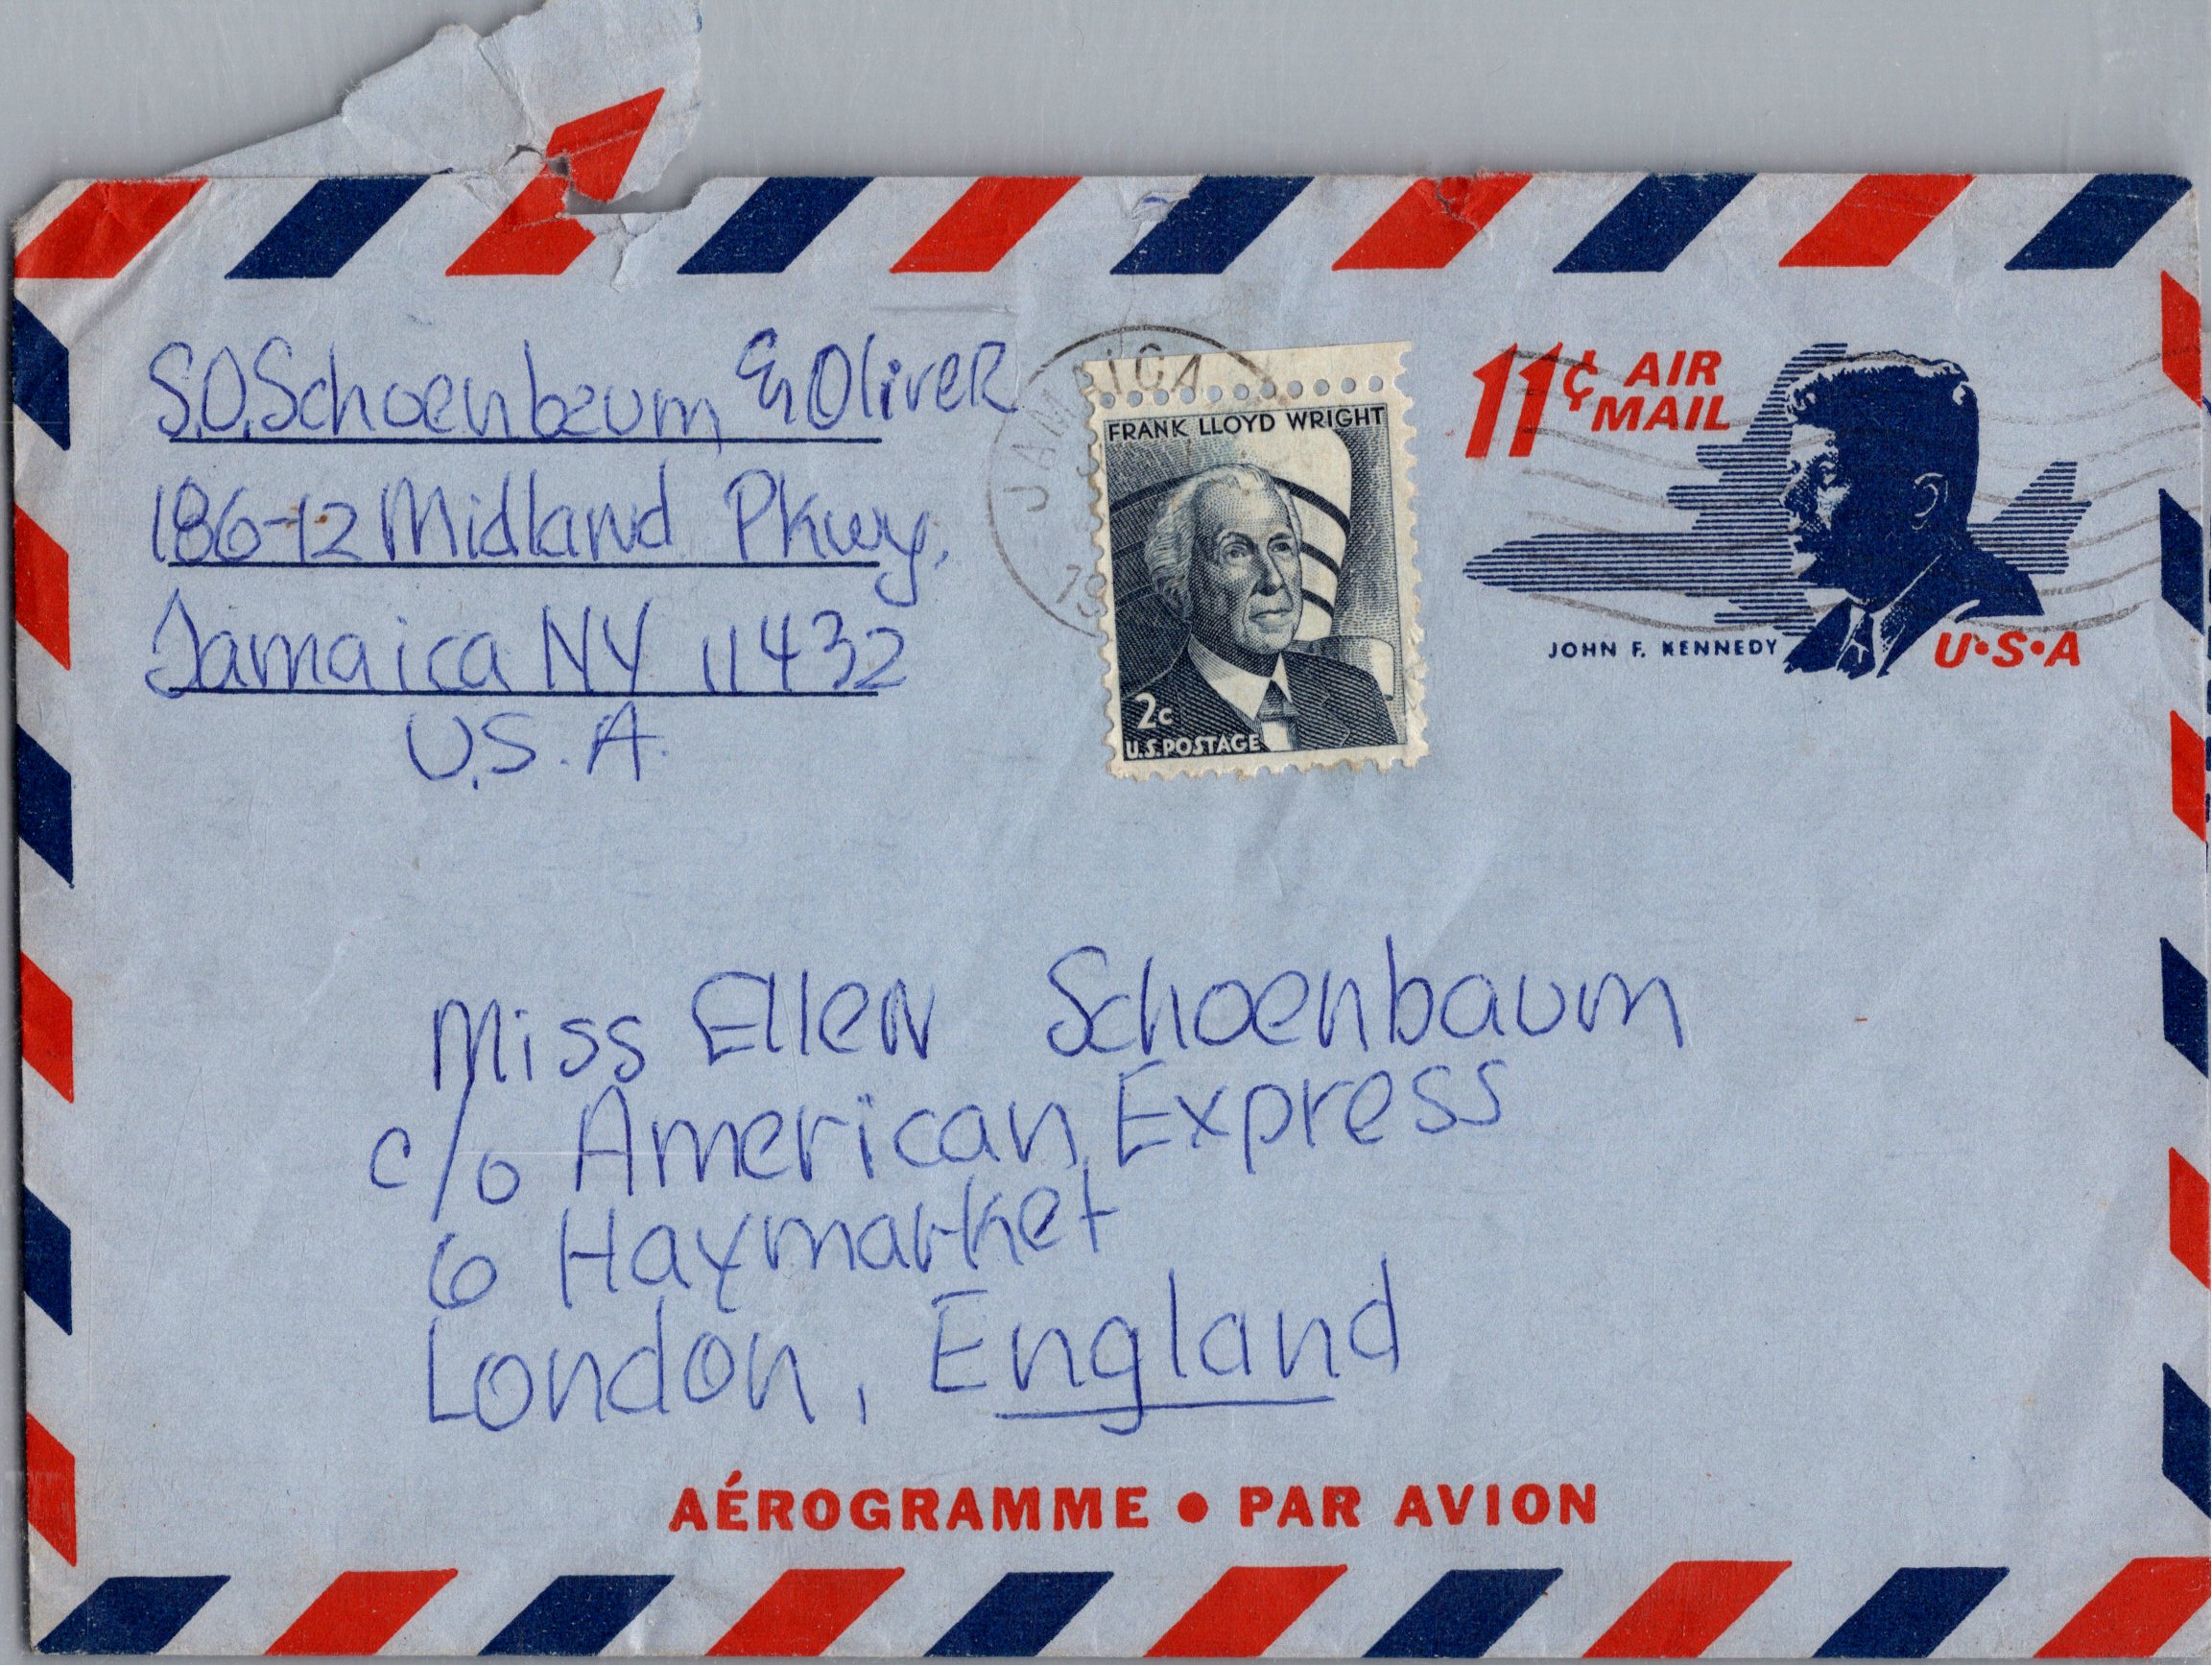 S.O. Schoenbaum & Oliver
186-12 Midland Pkwy.
Jamaica NY 11432
U.S.A.
JAMAICA
19
FRANK LLOYD WRIGHT
2c
U.S. POSTAGE
11¢ AIR
MAIL
JOHN F. KENNEDY
U•S•A
Miss Ellen Schoenbaum
c/o American Express
6 Haymarket
London, England
AÉROGRAMME • PAR AVION